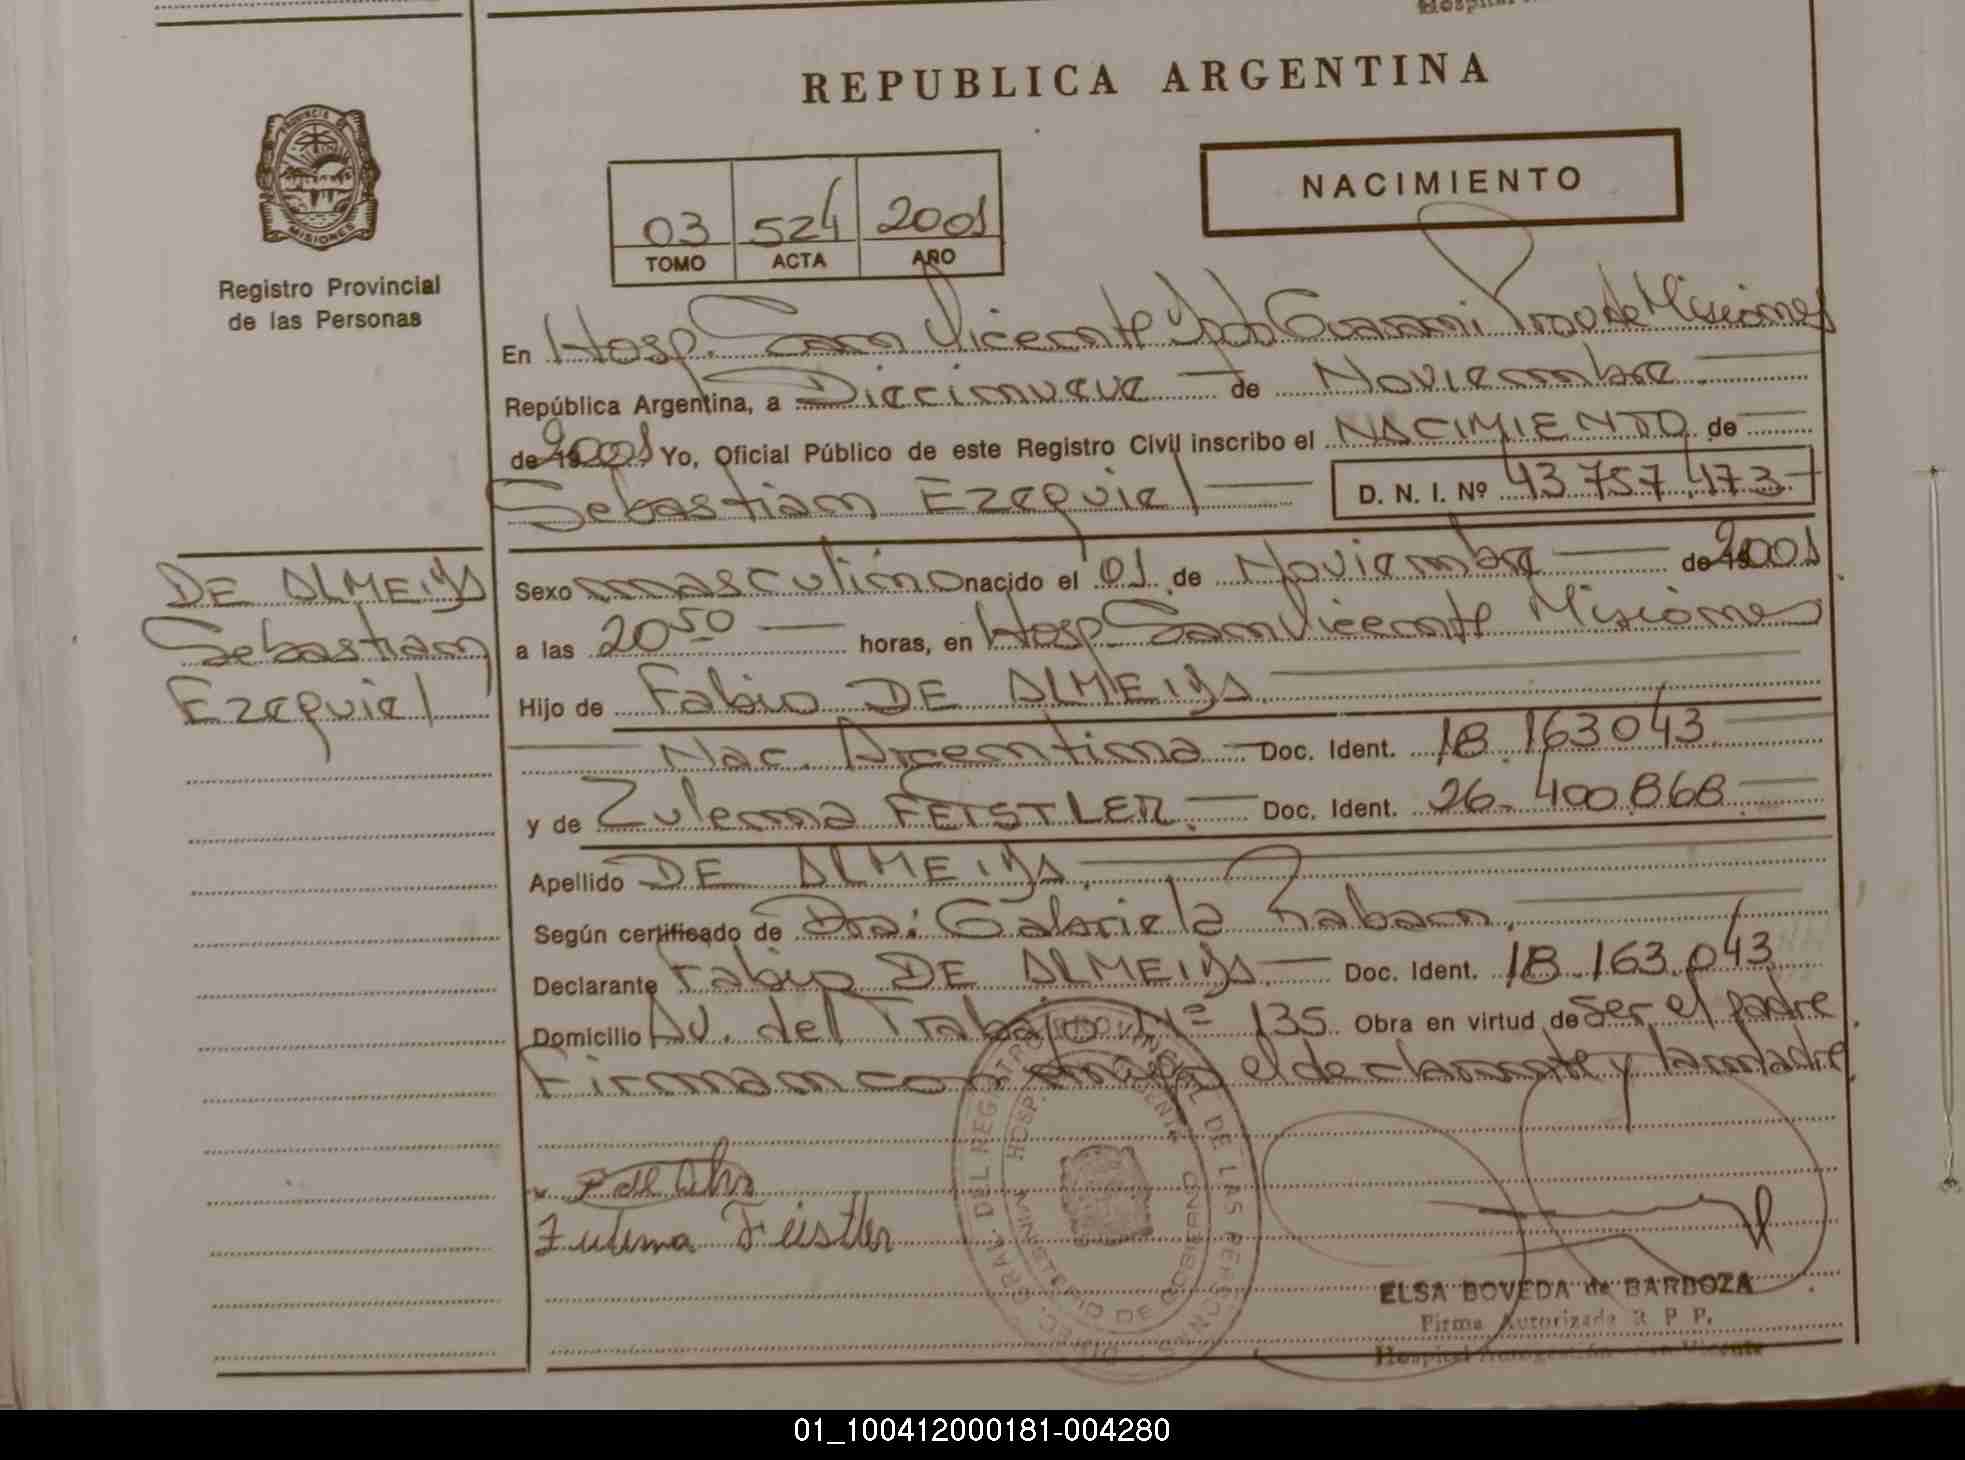 Hospital
REPUBLICA ARGENTINA
NACIMIENTO
03 524 2001
TOMO ACTA AÑO
PROVINCIA DE
MISIONES
Registro Provincial
de las Personas
En Hosp. San Vicente Dpto Guarani Prov de Misiones
República Argentina, a Diecinueve de Noviembre
de 2001 Yo, Oficial Público de este Registro Civil inscribo el NACIMIENTO de
Sebastian Ezequiel D. N. I. Nº 43 757 473
DE ALMEIDA
Sebastian
Ezequiel
Sexo masculino nacido el 01 de Noviembre de 2001
a las 20 50 horas, en Hosp San Vicente Misiones
Hijo de Fabio DE ALMEIDA
Nac. Argentina Doc. Ident. 18 163043
y de Zulema FEISTLER. Doc. Ident. 26. 400.868
Apellido DE ALMEIDA
Según certificado de Dra: Gabriela Raban
Declarante Fabio DE ALMEIDA Doc. Ident. 18.163.043
Domicilio Av. del Trabajo Nº 135 Obra en virtud de Ser el padre
Firman con el declarante y la madre
Zulema Feistler
HOSP.
MINISTERIO DE GOBIERNO
ELSA BOVEDA de BARDOZA
Firma Autorizada R P P.
Hospital Autogestión San Vicente
01_100412000181-004280